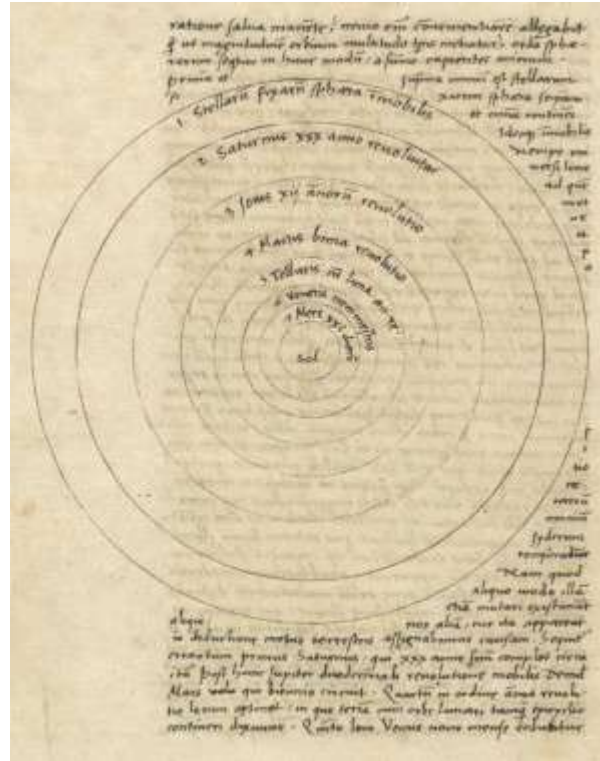 ratione salva manēte: nemo em̄ convenientiorē allegabit
q̄ ut magnitudinē orbium multitudo tp̄is metiatur, ordo sphæ-
rarum sequitur in hunc modū: a summo capientes initium.
prima et suprema omniū est stellarum
fixarum sphæra seipsam
et omnia continens
Ideoq immobilis
Nempe uni
versi locus
ad quē
mot
1 Stellarū fixarū sphæra īmobilis
2 Saturnus xxx anno revolvitur
3 Jovis xii annorū revolutio
4 Martis bima revolutio
5 Telluris cū luna an. re.
6 Veneris nonimestris
7 Merc. xxc dierū
Sol
syderum
comparādus
Nam quod
aliquo modo illā
etiā mutari existimāt
aliqui nos aliā, cur ita appareat
in deductione motus terrestris assignabimus causam. Sequit
errantium primus Saturnus, qui xxx anno suū complet circu
itū. Post hunc Jupiter duodecennali revolutione mobilis. Deind
Mars qui biennio circuit. Quartū in ordine annua revolu-
tio locum optinet: in quo terrā cum orbe lunari tanq epicyclio
contineri diximus. Quinto loco Venus nono mense reducitur